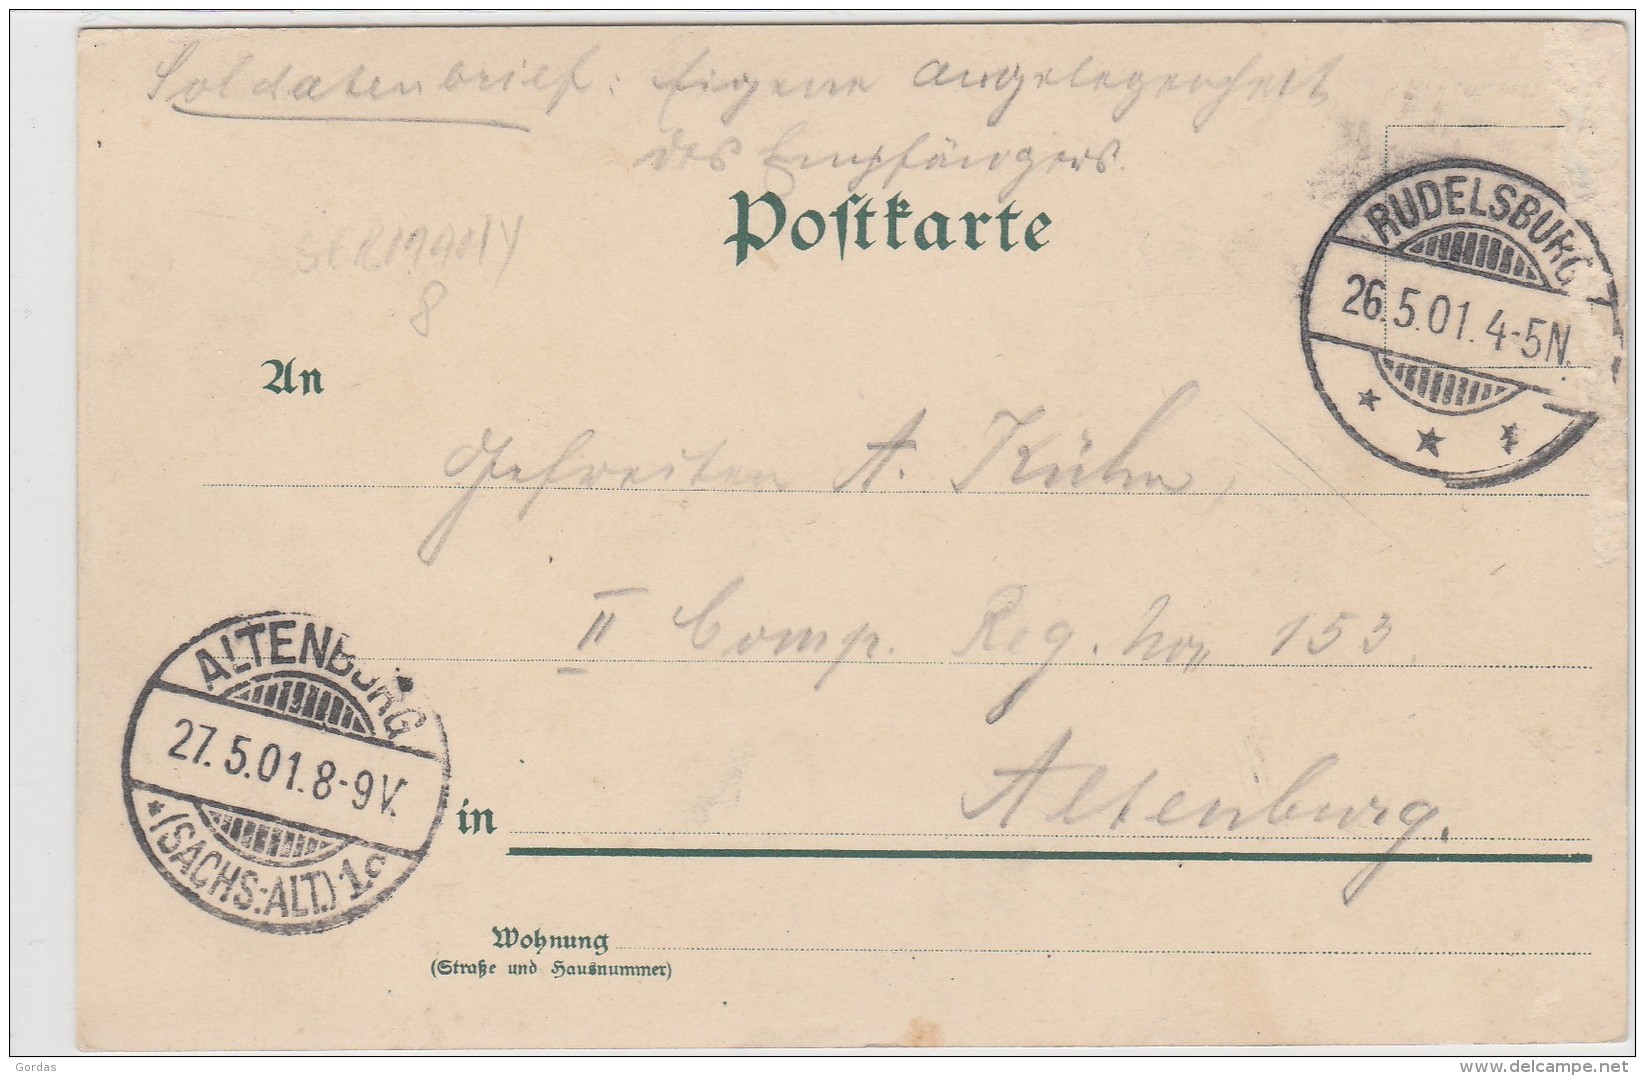 Soldatenbrief: Eigene Angelegenheit
des Empfängers.
Postkarte
GERMANY
8
RUDELSBURG
26.5.01. 4-5N.
An
Gefreiten A. Kühn,
II Comp. Reg. No 153.
ALTENBURG
27.5.01. 8-9V.
* (SACHS.-ALT.) 1.c
in Altenburg.
Wohnung
(Straße und Hausnummer)
Gordas
delcampe.net